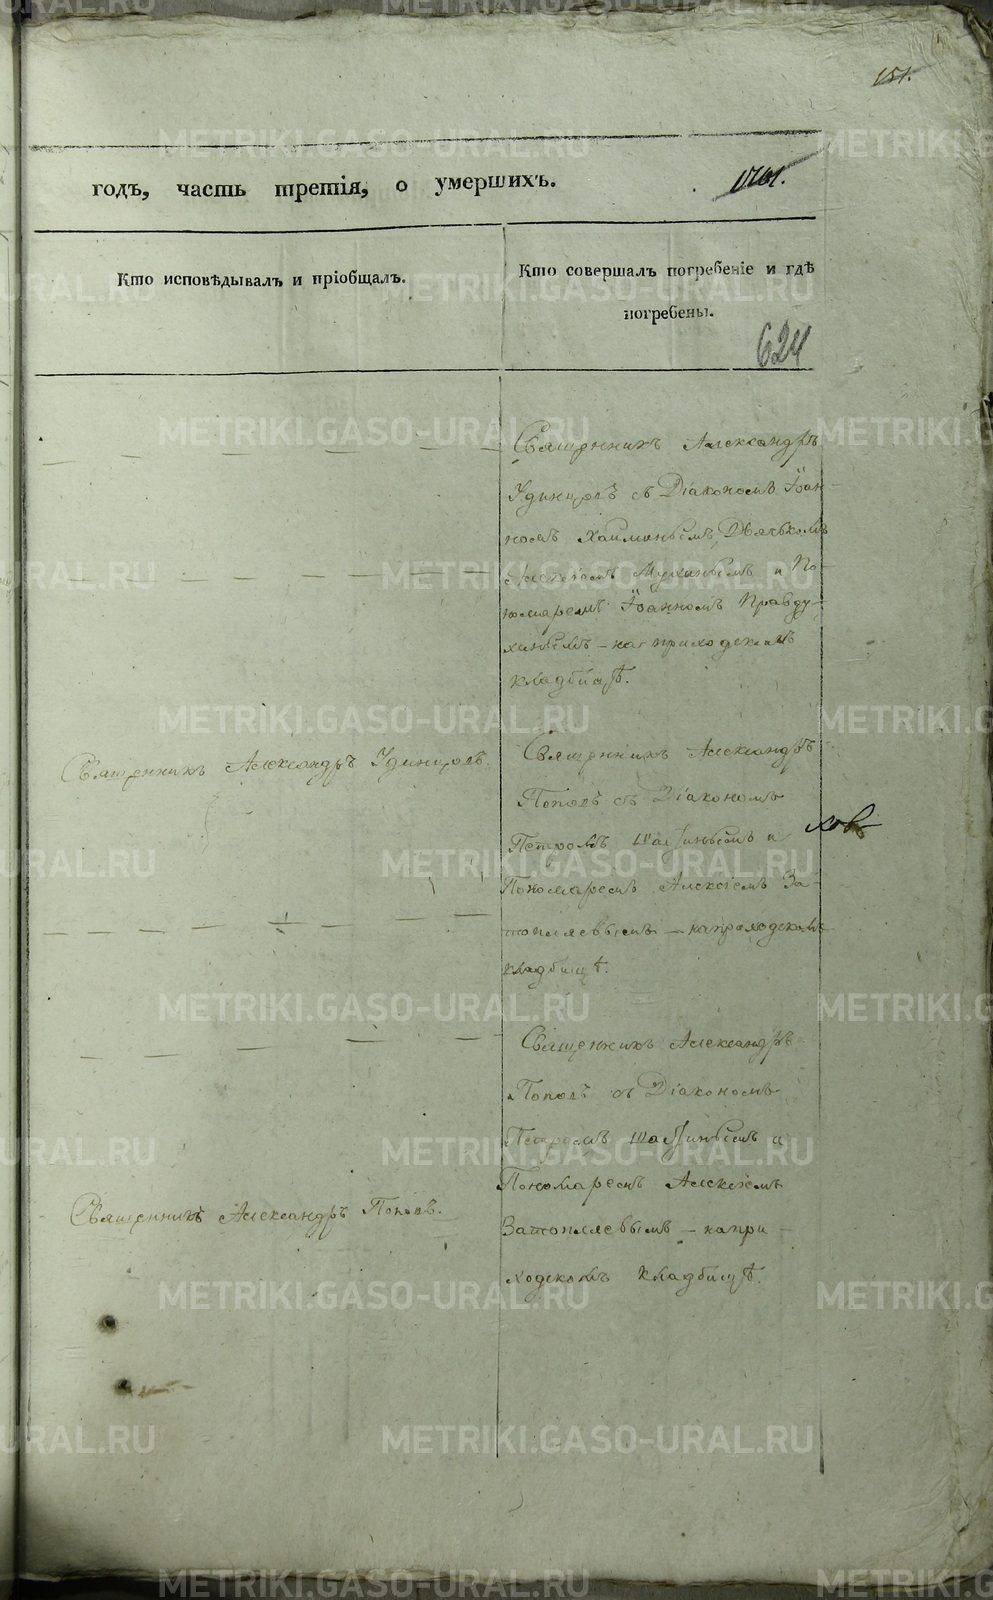 151.
годъ, часть третія, о умершихъ.
Кто исповѣдывалъ и пріобщалъ.
Кто совершалъ погребеніе и гдѣ
погребены.
624
Священникъ Александръ
Удинцовъ съ Діакономъ Іоан-
номъ Дьячкомъ
Алексіемъ и По-
номаремъ Іоанномъ Правду-
хинымъ – на приходскомъ
кладбищѣ.
Священникъ Александръ Удинцовъ.
Священникъ Александръ
Поповъ съ Діакономъ
Петромъ и
Пономаремъ Алексіемъ За-
топляевымъ – на приходскомъ
кладбищѣ.
Священникъ Александръ
Поповъ съ Діакономъ
Петромъ и
Пономаремъ Алексіемъ
Затопляевымъ – на при-
ходскомъ кладбищѣ.
Священникъ Александръ Поповъ.
METRIKI.GASO-URAL.RU